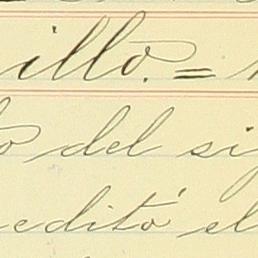 illo. =
o del sig
editó el